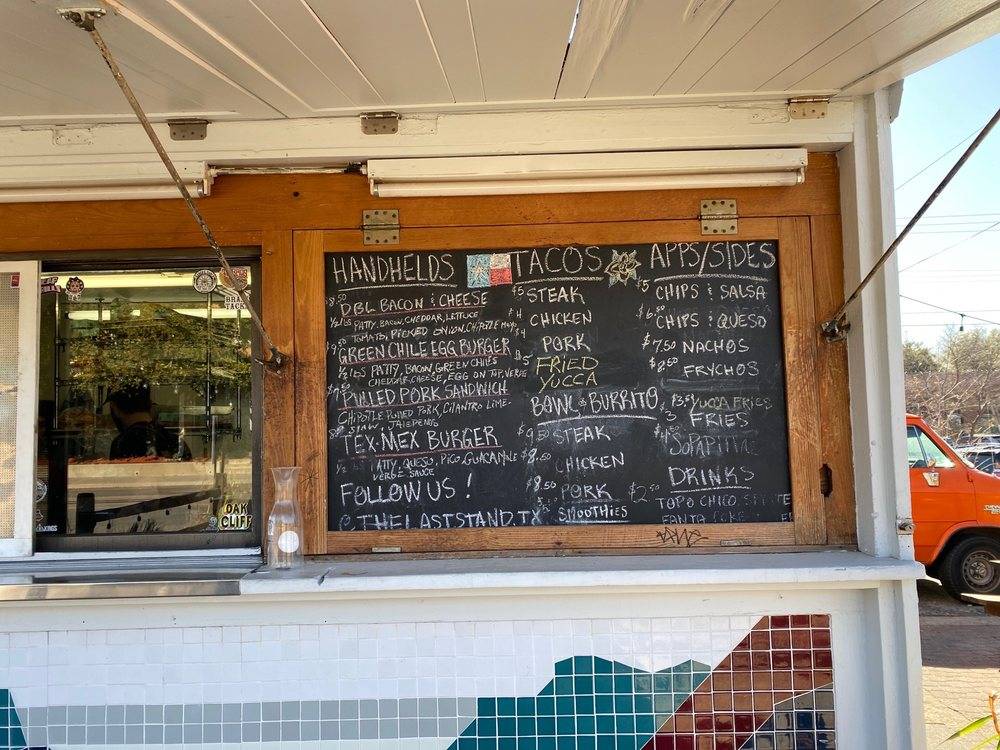 HANDHELDS
DBL BACON & CHEESE
PATTY, BACON, CHEDDAR, LETTUCE
TOMATO, PICKED ONION, CHIPOTLE MAYO
GREEN CHILE EGG BURGER
PATTY, BACON, GREEN CHILES
CHEDDAR CHEESE, EGG ON TOP, VERDE
PULLED PORK SANDWICH
CHIPOTLE PULLED PORK, CILANTRO LIME-
SLAW, JALEPENO
TEX-MEX BURGER
PATTY, QUESO, PICO, GUACAMOLE
VERDE SAUCE
FOLLOW US!
@THELASTSTAND.TX
TACOS
$5 STEAK
$4 CHICKEN
$4 PORK
$5 FRIED
YUCCA
BOWL & BURRITO
STEAK
CHICKEN
PORK
SMOOTHIES
APPS/SIDES
$5 CHIPS & SALSA
CHIPS & QUESO
$7.50 NACHOS
$2.50 FRYCHOS
YUCCA FRIES
FRIES
SOPAPILLA
DRINKS
TOPO CHICO SPRITE
FANTA COKE
OAK
CLIFF